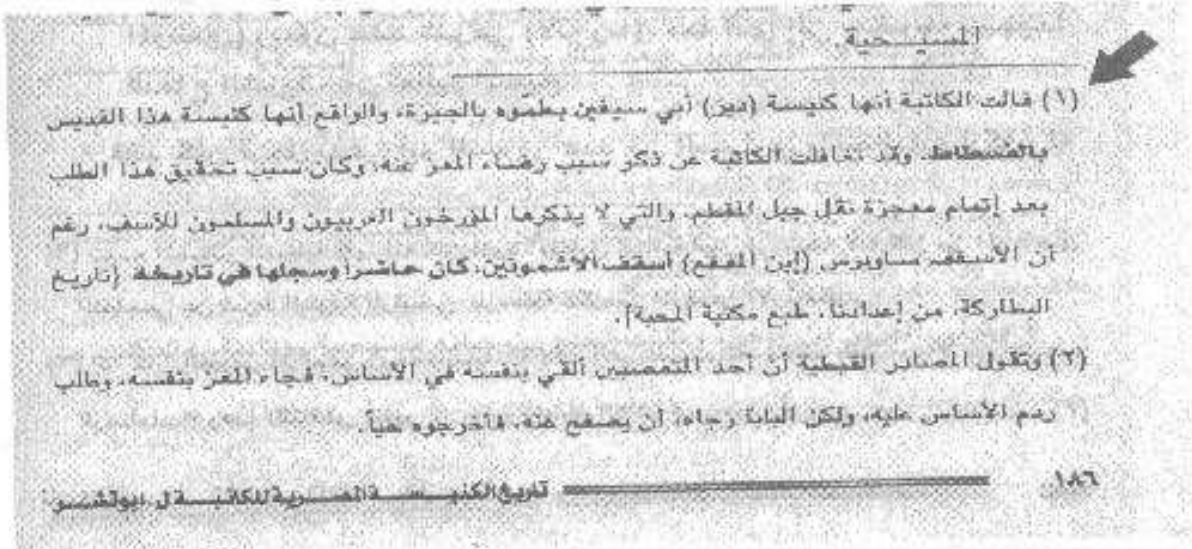 المسيحية.
(١) قالت الكاتبة أنها كنيسة (دير) أبي سيفين بطموه بالجيزة، والواقع أنها كنيسة هذا القديس
بالفسطاط. وقد تغافلت الكاتبة عن ذكر سبب رضاء المعز عنه، وكان سبب تحقيق هذا الطلب
بعد إتمام معجزة نقل جبل المقطم. والتي لا يذكرها المؤرخون الغربيون والمسلمون للأسف، رغم
أن الأسقف ساويرس (إبن المقفع) أسقف الأشمونين، كان حاضراً وسجلها في تاريخه (تاريخ
البطاركة، من إعدادنا، طبع مكتبة المحبة).
(٢) وتقول المصادر القبطية أن أحد المتعصبين ألقي بنفسه في الأساس، فجاء المعز بنفسه، وطلب
ردم الأساس عليه، ولكن البابا رجاه، أن يصفح عنه، فأخرجوه حياً.
١٨٦ تاريخ الكنيسة المصرية للكاتبة ل. بوتشر